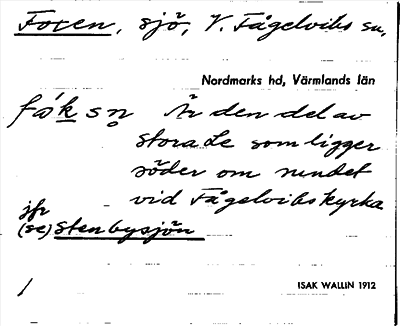 Foxen, sjö, V. Fågelviks sn,
Nordmarks hd, Värmlands län
fo´ksn̥ Är den del av
stora Le som ligger
söder om sundet
vid Fågelviks kyrka
jfr
(se) Stenbysjön
/
ISAK WALLIN 1912